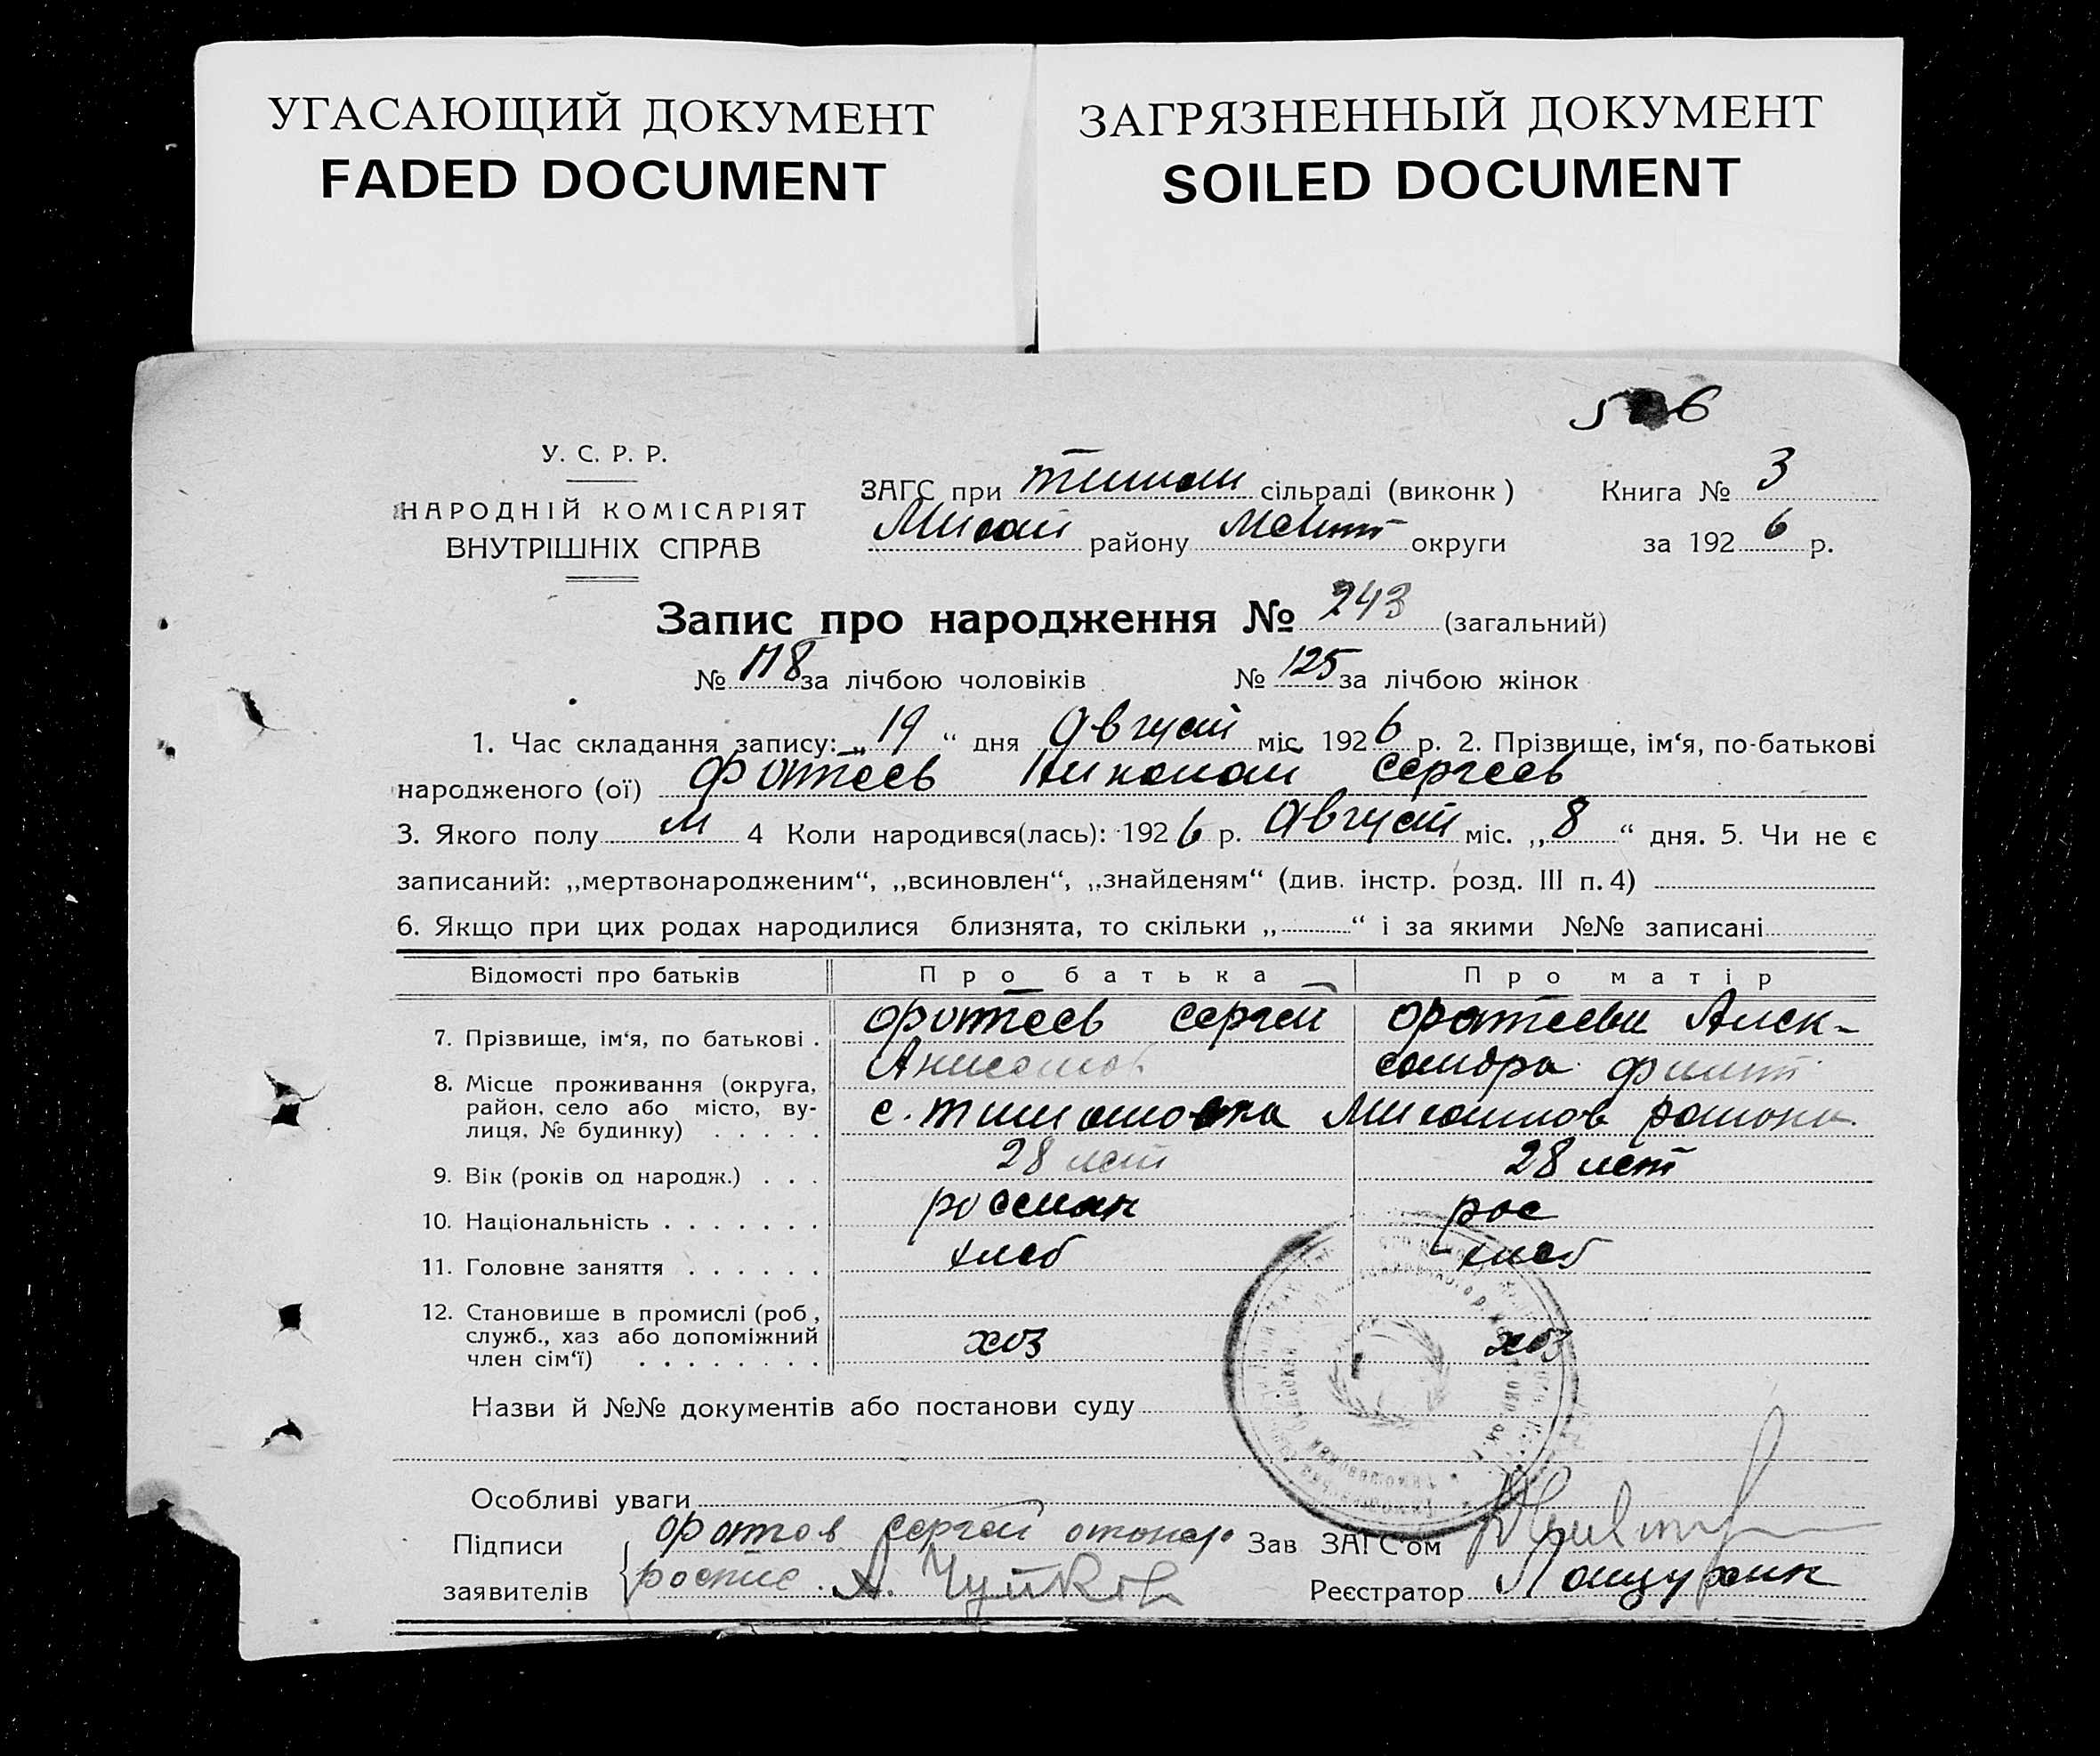 УГАСАЮЩИЙ ДОКУМЕНТ
FADED DOCUMENT
ЗАГРЯЗНЕННЫЙ ДОКУМЕНТ
SOILED DOCUMENT
У. С. Р. Р.
НАРОДНІЙ КОМІСАРІЯТ
ВНУТРІШНІХ СПРАВ
ЗАГС при Тимош сільраді (виконк)
району Меліт округи
Книга № 3
за 1926 р.
Запис про народження № 243 (загальний)
№ 118 за лічбою чоловіків № 125 за лічбою жінок
1. Час складання запису: „19“ дня Август міс. 1926 р. 2. Прізвище, ім‘я, по-батькові
народженого (ої) Фатеев Николай Сергеев
3. Якого полу м 4 Коли народився(лась): 1926 р. Август міс. „8“ дня. 5. Чи не є
записаний: „мертвонародженим“, „всиновлен“, „знайденям“ (див. інстр. розд. III п. 4)
6. Якщо при цих родах народилися близнята, то скільки „ “ і за якими №№ записані
Відомості про батьків Про батька Про матір
7. Прізвище, ім‘я, по батькові . Фатеев Сергей Фатеева Алек-
сандра
8. Місце проживання (округа,
район, село або місто, ву-
лиця, № будинку) . . . . . с. Тимошовка района
9. Вік (років од народж.) . . . 28 лет 28 лет
10. Національність . . . . . . . рос
11. Головне заняття . . . . . . хлеб хлеб
12. Становише в промислі (роб,
служб., хаз або допоміжний
член сім‘ї) . . . . . . . . хоз хоз
Назви й №№ документів або постанови суду
Особливі уваги
Підписи Сергей
заявителів А. Чуйков
Зав ЗАГС‘ом
Реєстратор